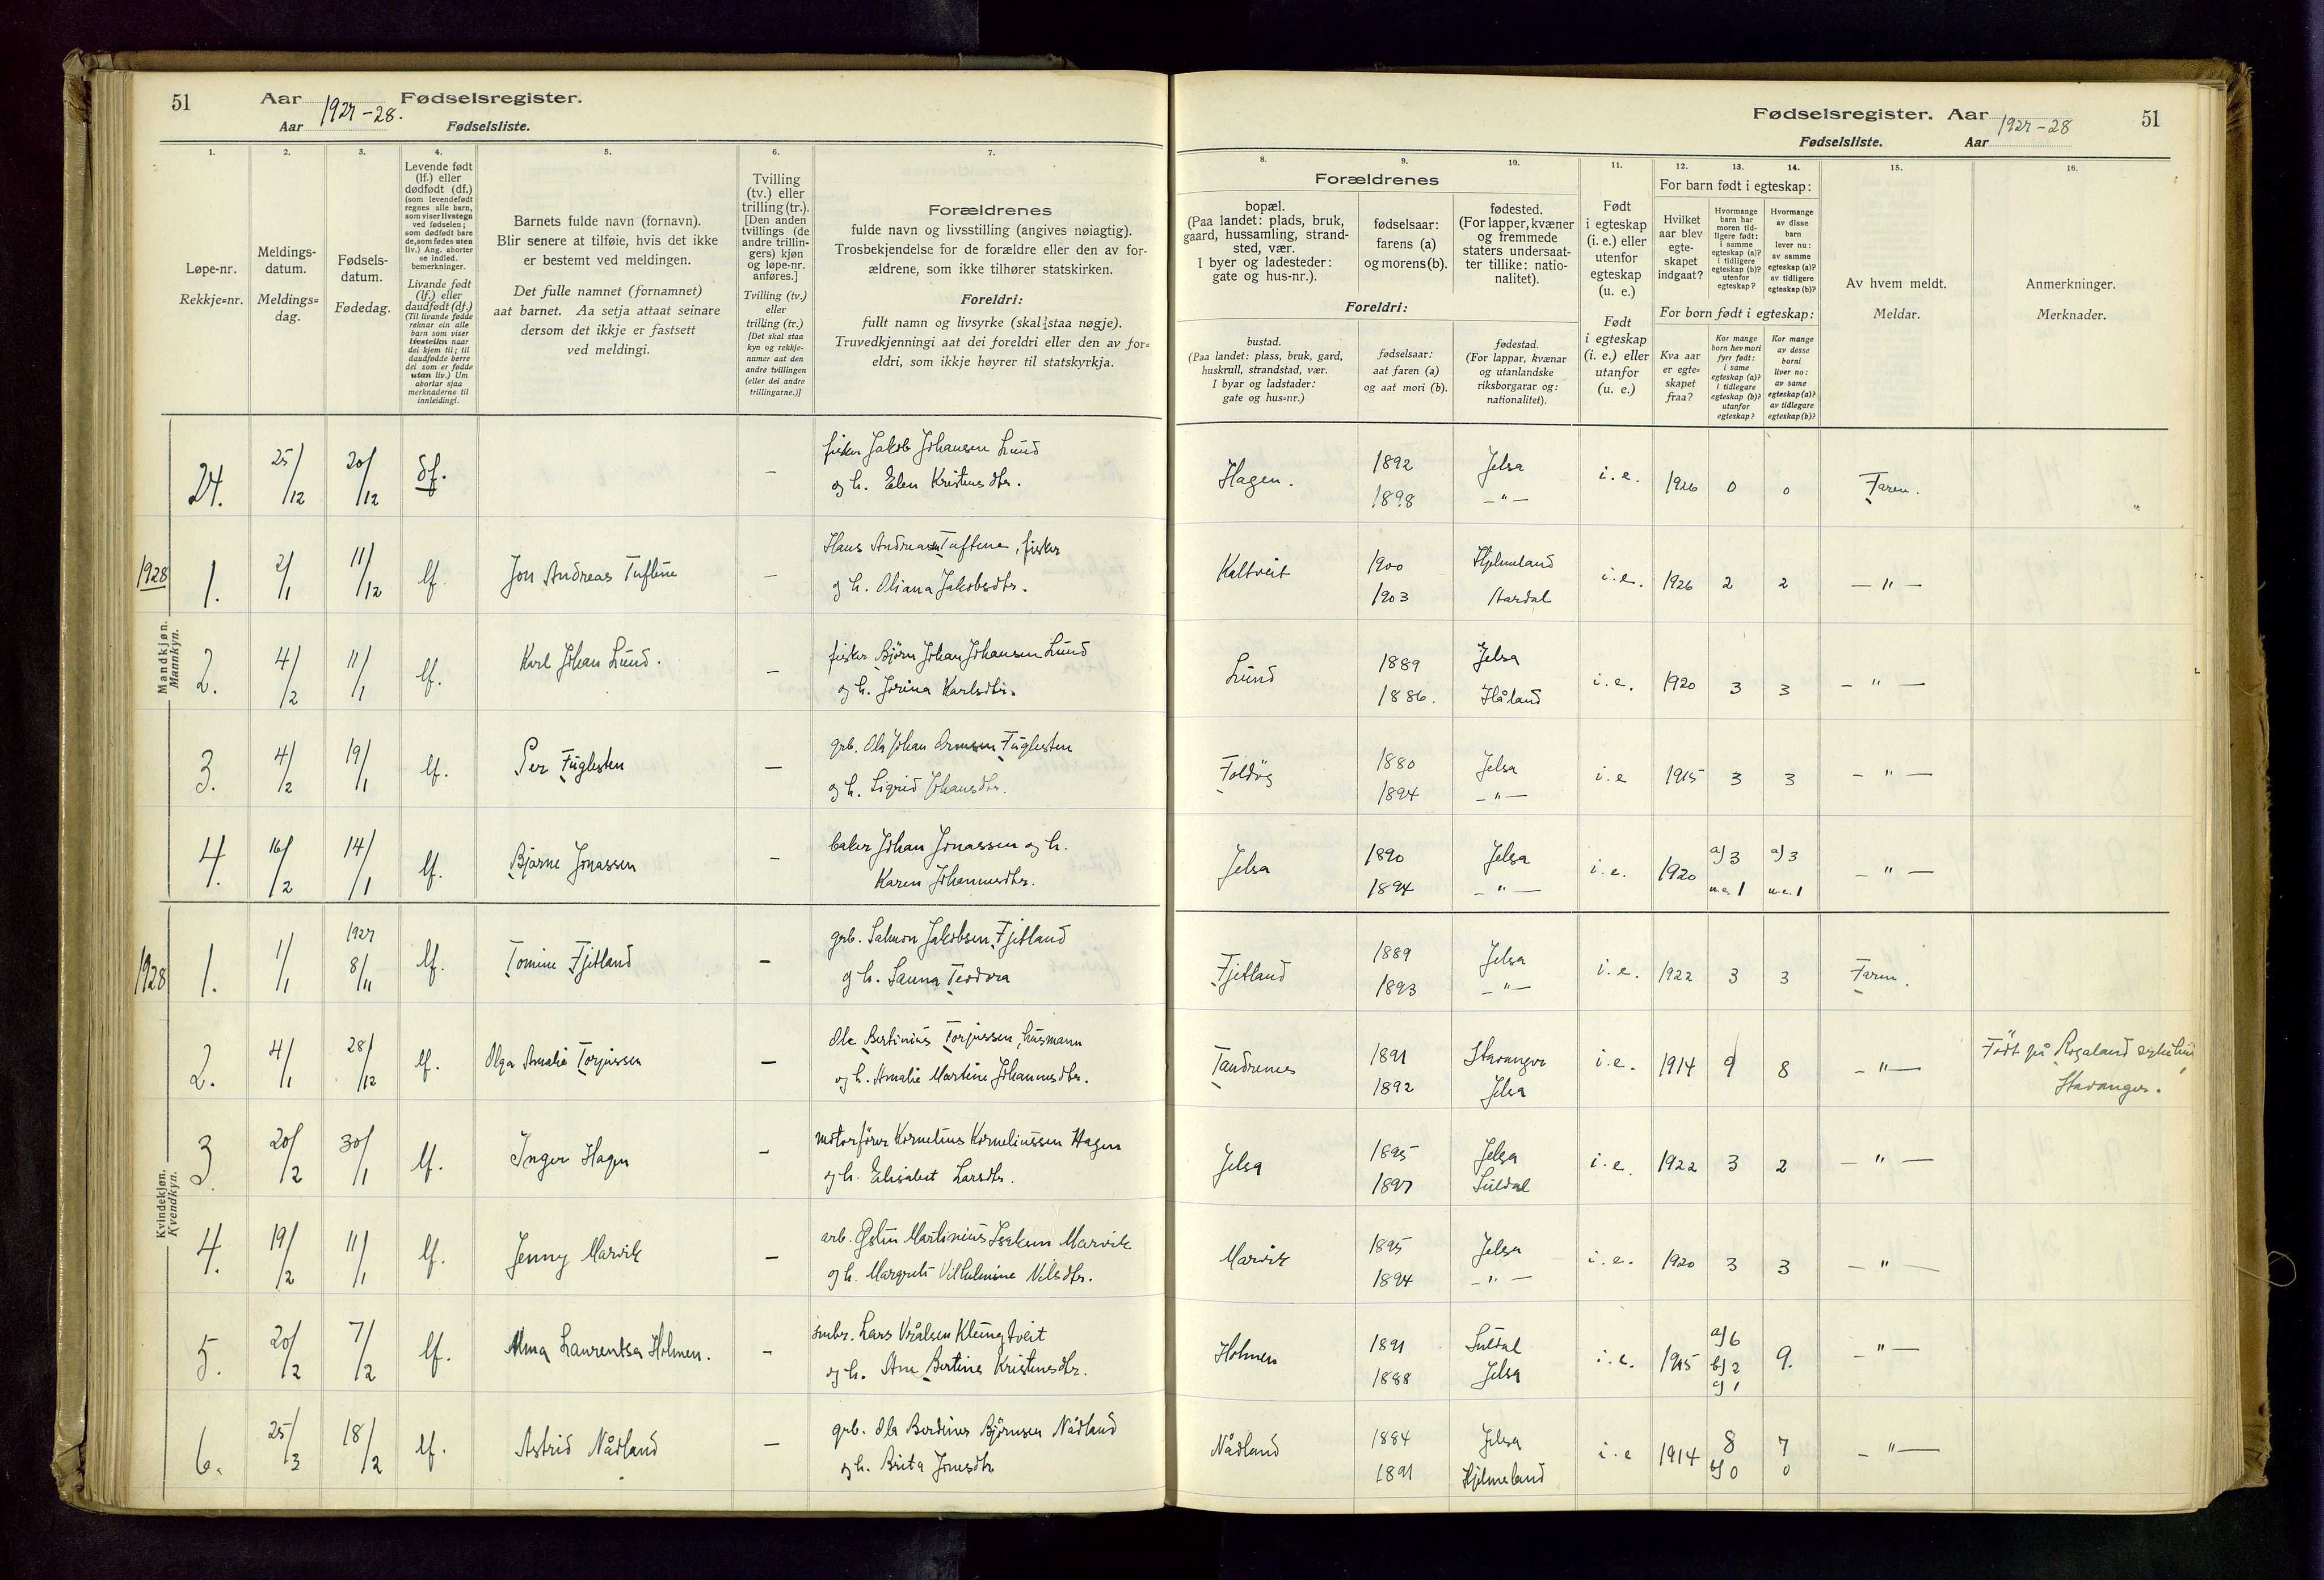 51
Aar 1927-28. Fødselsregister.
Aar
Fødselsliste.
1.
2.
3.
4.
5.
6.
7.
Løpe-nr.
Rekkje=nr.
Meldings-
datum.
Meldings=
dag.
Fødsels-
datum.
Fødedag.
Levende født
(lf.) eller
dødfødt (df.)
(som levendefødt
regnes alle barn,
som viser livstegn
ved fødselen;
som dødfødt bare
de, som fødes uten
liv.) Ang. aborter
se indled.
bemerkninger.
Livande født
(lf.) eller
daudfødt (df.)
(Til livande fødde
reknar ein alle
barn som viser
livsteikn naar
dei kjem til; til
daudfødde berre
dei som er fødde
utan liv.) Um
abortar sjaa
merknaderne til
innleidingi.
Barnets fulde navn (fornavn).
Blir senere at tilføie, hvis det ikke
er bestemt ved meldingen.
Det fulle namnet (fornamnet)
aat barnet. Aa setja attaat seinare
dersom det ikkje er fastsett
ved meldingi.
Tvilling
(tv.) eller
trilling (tr.).
[Den anden
tvillings (de
andre trillin-
gers) kjøn
og løpe-nr.
anføres.]
Tvilling (tv.)
eller
trilling (tr.)
[Det skal staa
kyn og rekkje-
numer aat den
andre tvillingen
(eller dei andre
trillingarne.)]
Forældrenes
fulde navn og livsstilling (angives nøiagtig).
Trosbekjendelse for de forældre eller den av for-
ældrene, som ikke tilhører statskirken.
Foreldri:
fullt namn og livsyrke (skal staa nøgje).
Truvedkjenningi aat dei foreldri eller den av for=
eldri, som ikkje høyrer til statskyrkja.
24. 25/12 20/12 df. — fisker Jakob Johansen Lund
og h. Elen Kristensdtr.
1928
1. 2/1 11/12 lf. Jon Andreas Tuftene — Hans Andreasen Tuftene, fisker
og h. Oliana Jakobsdtr.
Mandkjøn.
Mannkyn.
2. 4/2 11/1 lf. Karl Johan Lund. — fisker Björn Johan Johansen Lund
og h. Jorina Karlsdtr.
3. 4/2 19/1 lf. Per Fuglesten — grb. Ola Johan Fuglesten
og h. Sigrid Johansdtr.
4. 16/2 14/1 lf. Bjarne Jonassen — baker Johan Jonassen og h.
Karen Johannesdtr.
1928
1. 1/1 1927 8/11 lf. Tomine Fjetland — grb. Salmon Jakobsen Fjetland
og h. Launa Teodora
2. 4/1 28/12 lf. Olga Amalie Torjussen — Ole Bertinius Torjussen, husmann
og h. Amalie Martine Johannesdtr.
Kvindekjøn.
Kvendkyn.
3. 20/2 30/1 lf. Inger Hagen — motorfører Kornelius Korneliussen Hagen
og h. Elisabet Larsdtr.
4. 19/2 11/1 lf. Jenny Marvik — arb. Martinius Marvik
og h. Margrete Vilhelmine Nilsdtr.
5. 20/2 7/2 lf. Alma Laurentsa Holmen. — smbr. Lars Vrålsen Klungtveit
og h. Ane Bertine Kristensdtr.
6. 25/3 18/2 lf. Astrid Nådland — grb. Ola Berdines Björnsen Nådland
og h. Brita Jonsdtr.
Fødselsregister. Aar 1927-28
51
Fødselsliste.
Aar
8.
9.
10.
11.
12.
13.
14.
15.
16.
Forældrenes
bopæl.
(Paa landet: plads, bruk,
gaard, hussamling, strand-
sted, vær.
I byer og ladesteder:
gate og hus-nr.).
fødselsaar:
farens (a)
og morens (b).
fødested.
(For lapper, kvæner
og fremmede
staters undersaat-
ter tillike: natio-
nalitet).
Foreldri:
bustad.
(Paa landet: plass, bruk, gard,
huskrull, strandstad, vær.
I byar og ladstader:
gate og hus=nr.)
fødselsaar:
aat faren (a)
og aat mori (b).
fødestad.
(For lappar, kvænar
og utanlandske
riksborgarar og:
nationalitet).
Født
i egteskap
(i. e.) eller
utenfor
egteskap
(u. e.)
Født
i egteskap
(i. e.) eller
utanfor
(u. e.)
For barn født i egteskap:
Hvilket
aar blev
egte-
skapet
indgaat?
Hvormange
barn har
moren tid-
ligere født:
i samme
egteskap (a)?
i tidligere
egteskap (b)?
utenfor
egteskap?
Hvormange
av disse
barn
lever nu:
av samme
egteskap (a)?
av tidligere
egteskap (b)?
For born født i egteskap:
Kva aar
er egte=
skapet
fraa?
Kor mange
born hev mori
fyrr født:
i same
egteskap (a)?
i tidlegare
egteskap (b)?
utanfor
egteskap?
Kor mange
av desse
borni
liver no:
av same
egteskap (a)?
av tidlegare
egteskap (b)?
Av hvem meldt.
Meldar.
Anmerkninger.
Merknader.
Hagen. 1892 Jelsa i. e. 1926 0 0 Faren.
1898 — " —
Kaltveit 1900 Hjelmeland i. e. 1926 2 2 — " —
1903 Aardal
Lund 1889 Jelsa i. e. 1920 3 3 — " —
1886. Håland
Foldöy 1880 Jelsa i. e 1915 3 3 — " —
1894 — " —
Jelsa 1890 Jelsa i. e. 1920 a) 3 a) 3 — " —
1894 — " — u.e. 1 u.e. 1
Fjetland 1889 Jelsa i. e. 1922 3 3 Faren.
1893 — " —
Tandrenes 1891 Stavanger i. e. 1914 9 8 — " — Född på Rogaland sykehus
1892 Jelsa Stavanger.
Jelsa 1895 Jelsa i. e. 1922 3 2 — " —
1897 Suldal
Marvik 1895 Jelsa i. e. 1920 3 3 — " —
1894 — " —
Holmen 1891 Suldal i. e. 1915 a) 6 9. — " —
1888 Jelsa b) 2
c) 1
Nådland 1884 Jelsa i. e 1914 8 7 — " —
1891 Hjelmeland b) 0 0